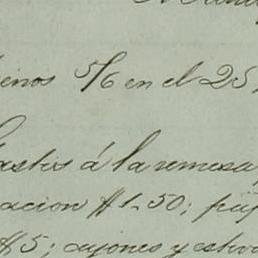 enos 5/6 en el 25
Gastos á la remesa
acion $1.50;
$5; cajones y estiva